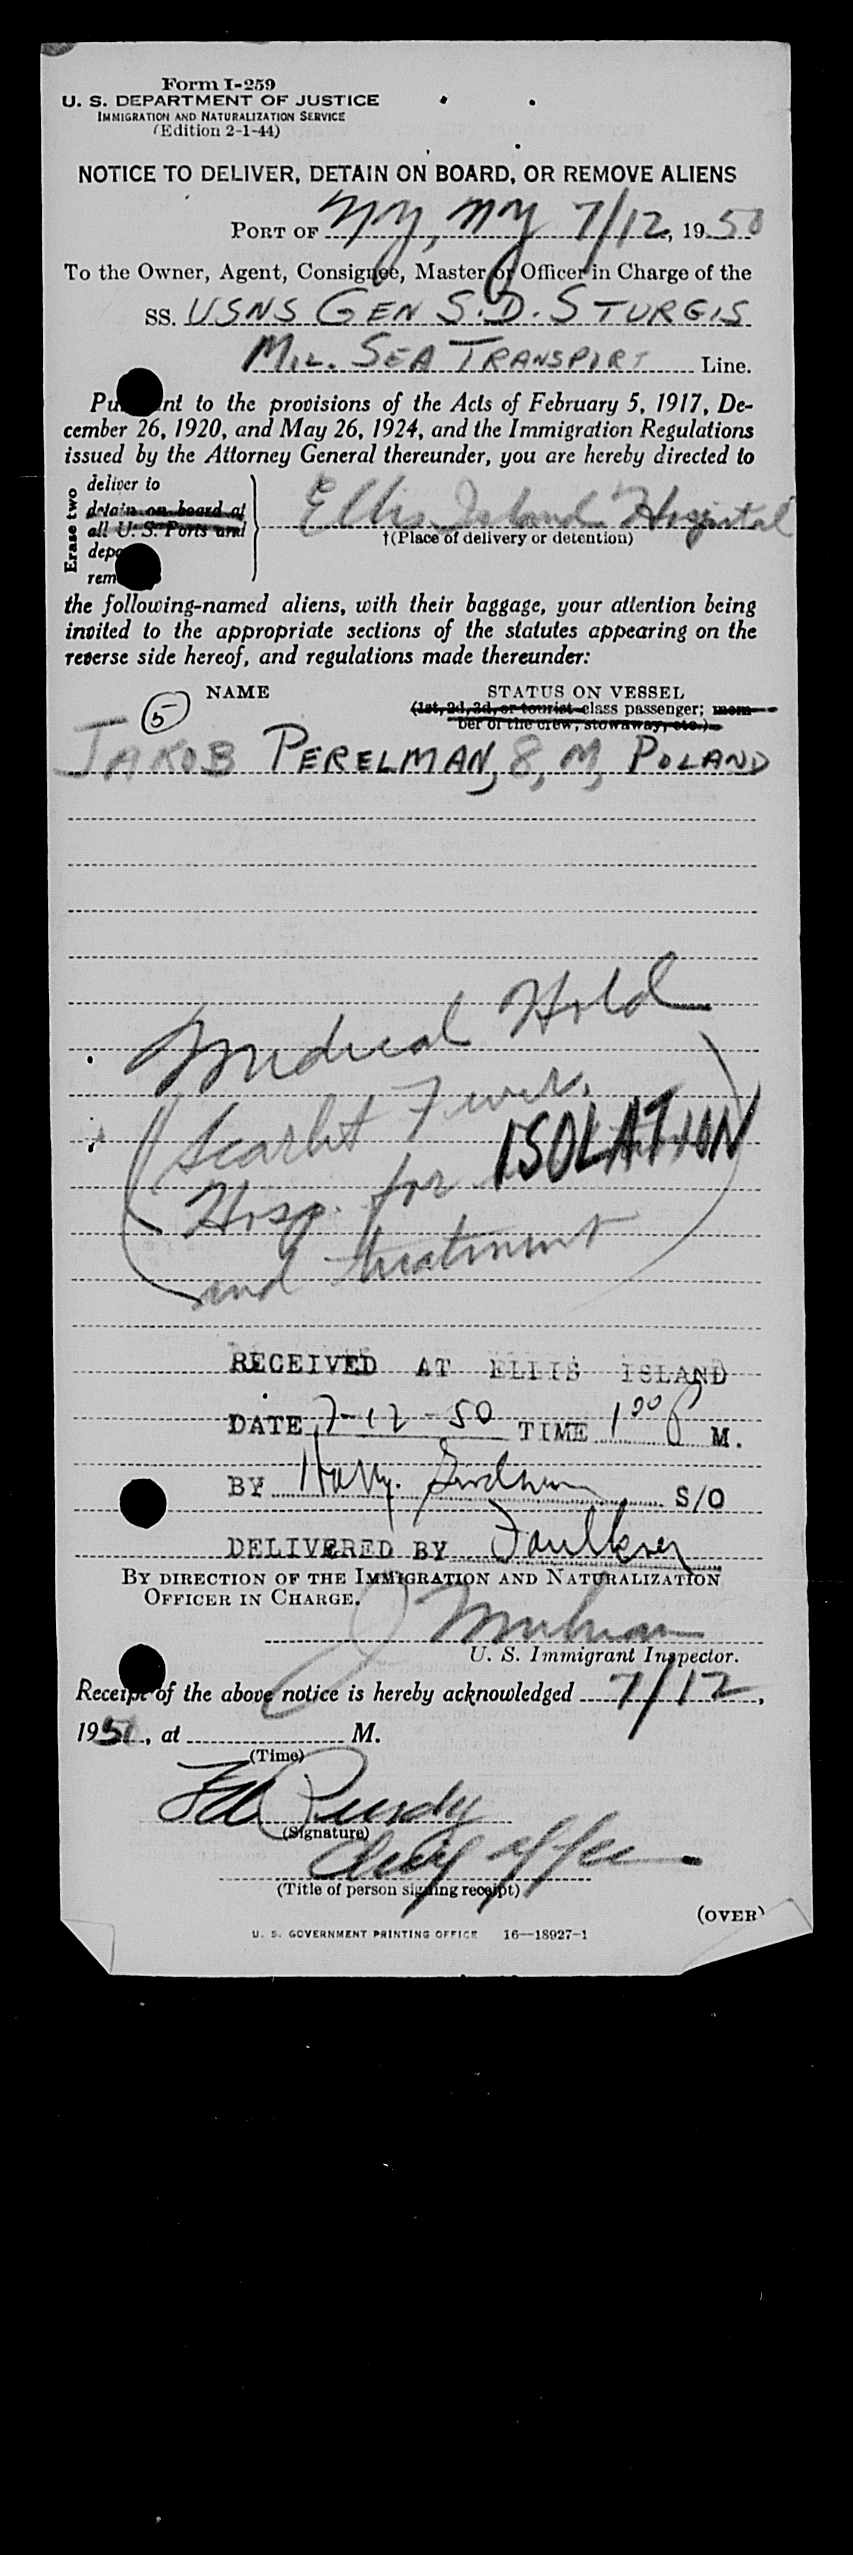 Form I-259
U. S. DEPARTMENT OF JUSTICE
IMMIGRATION AND NATURALIZATION SERVICE
(Edition 2-1-44)
NOTICE TO DELIVER, DETAIN ON BOARD, OR REMOVE ALIENS
PORT OF NY, NY 7/12, 1950
To the Owner, Agent, Consignee, Master or Officer in Charge of the
SS. USNS GEN S.D. STURGIS
MIL. SEA TRANSPORT Line.
Pursuant to the provisions of the Acts of February 5, 1917, De-
cember 26, 1920, and May 26, 1924, and the Immigration Regulations
issued by the Attorney General thereunder, you are hereby directed to
Erase two
deliver to
detain on board at
all U. S. Ports and
Ellis Island Hospital
†(Place of delivery or detention)
the following-named aliens, with their baggage, your attention being
invited to the appropriate sections of the statutes appearing on the
reverse side hereof, and regulations made thereunder:
NAME STATUS ON VESSEL
(1st, 2d, 3d, or tourist class passenger; mem-
ber of the crew, stowaway, etc.)
5
JAKOB PERELMAN, 8, M, POLAND
Medical Hold
(Scarlet Fever.
Hosp. for ISOLATION
and treatment)
RECEIVED AT ELLIS ISLAND
DATE 7-12-50 TIME 1 00 P M.
BY Harry S/O
DELIVERED BY Faulkner
BY DIRECTION OF THE IMMIGRATION AND NATURALIZATION
OFFICER IN CHARGE.
U. S. Immigrant Inspector.
Receipt of the above notice is hereby acknowledged 7/12,
195, at M.
(Time)
Purdy
(Signature)
(Title of person signing receipt)
(OVER)
U. S. GOVERNMENT PRINTING OFFICE 16—18927-1